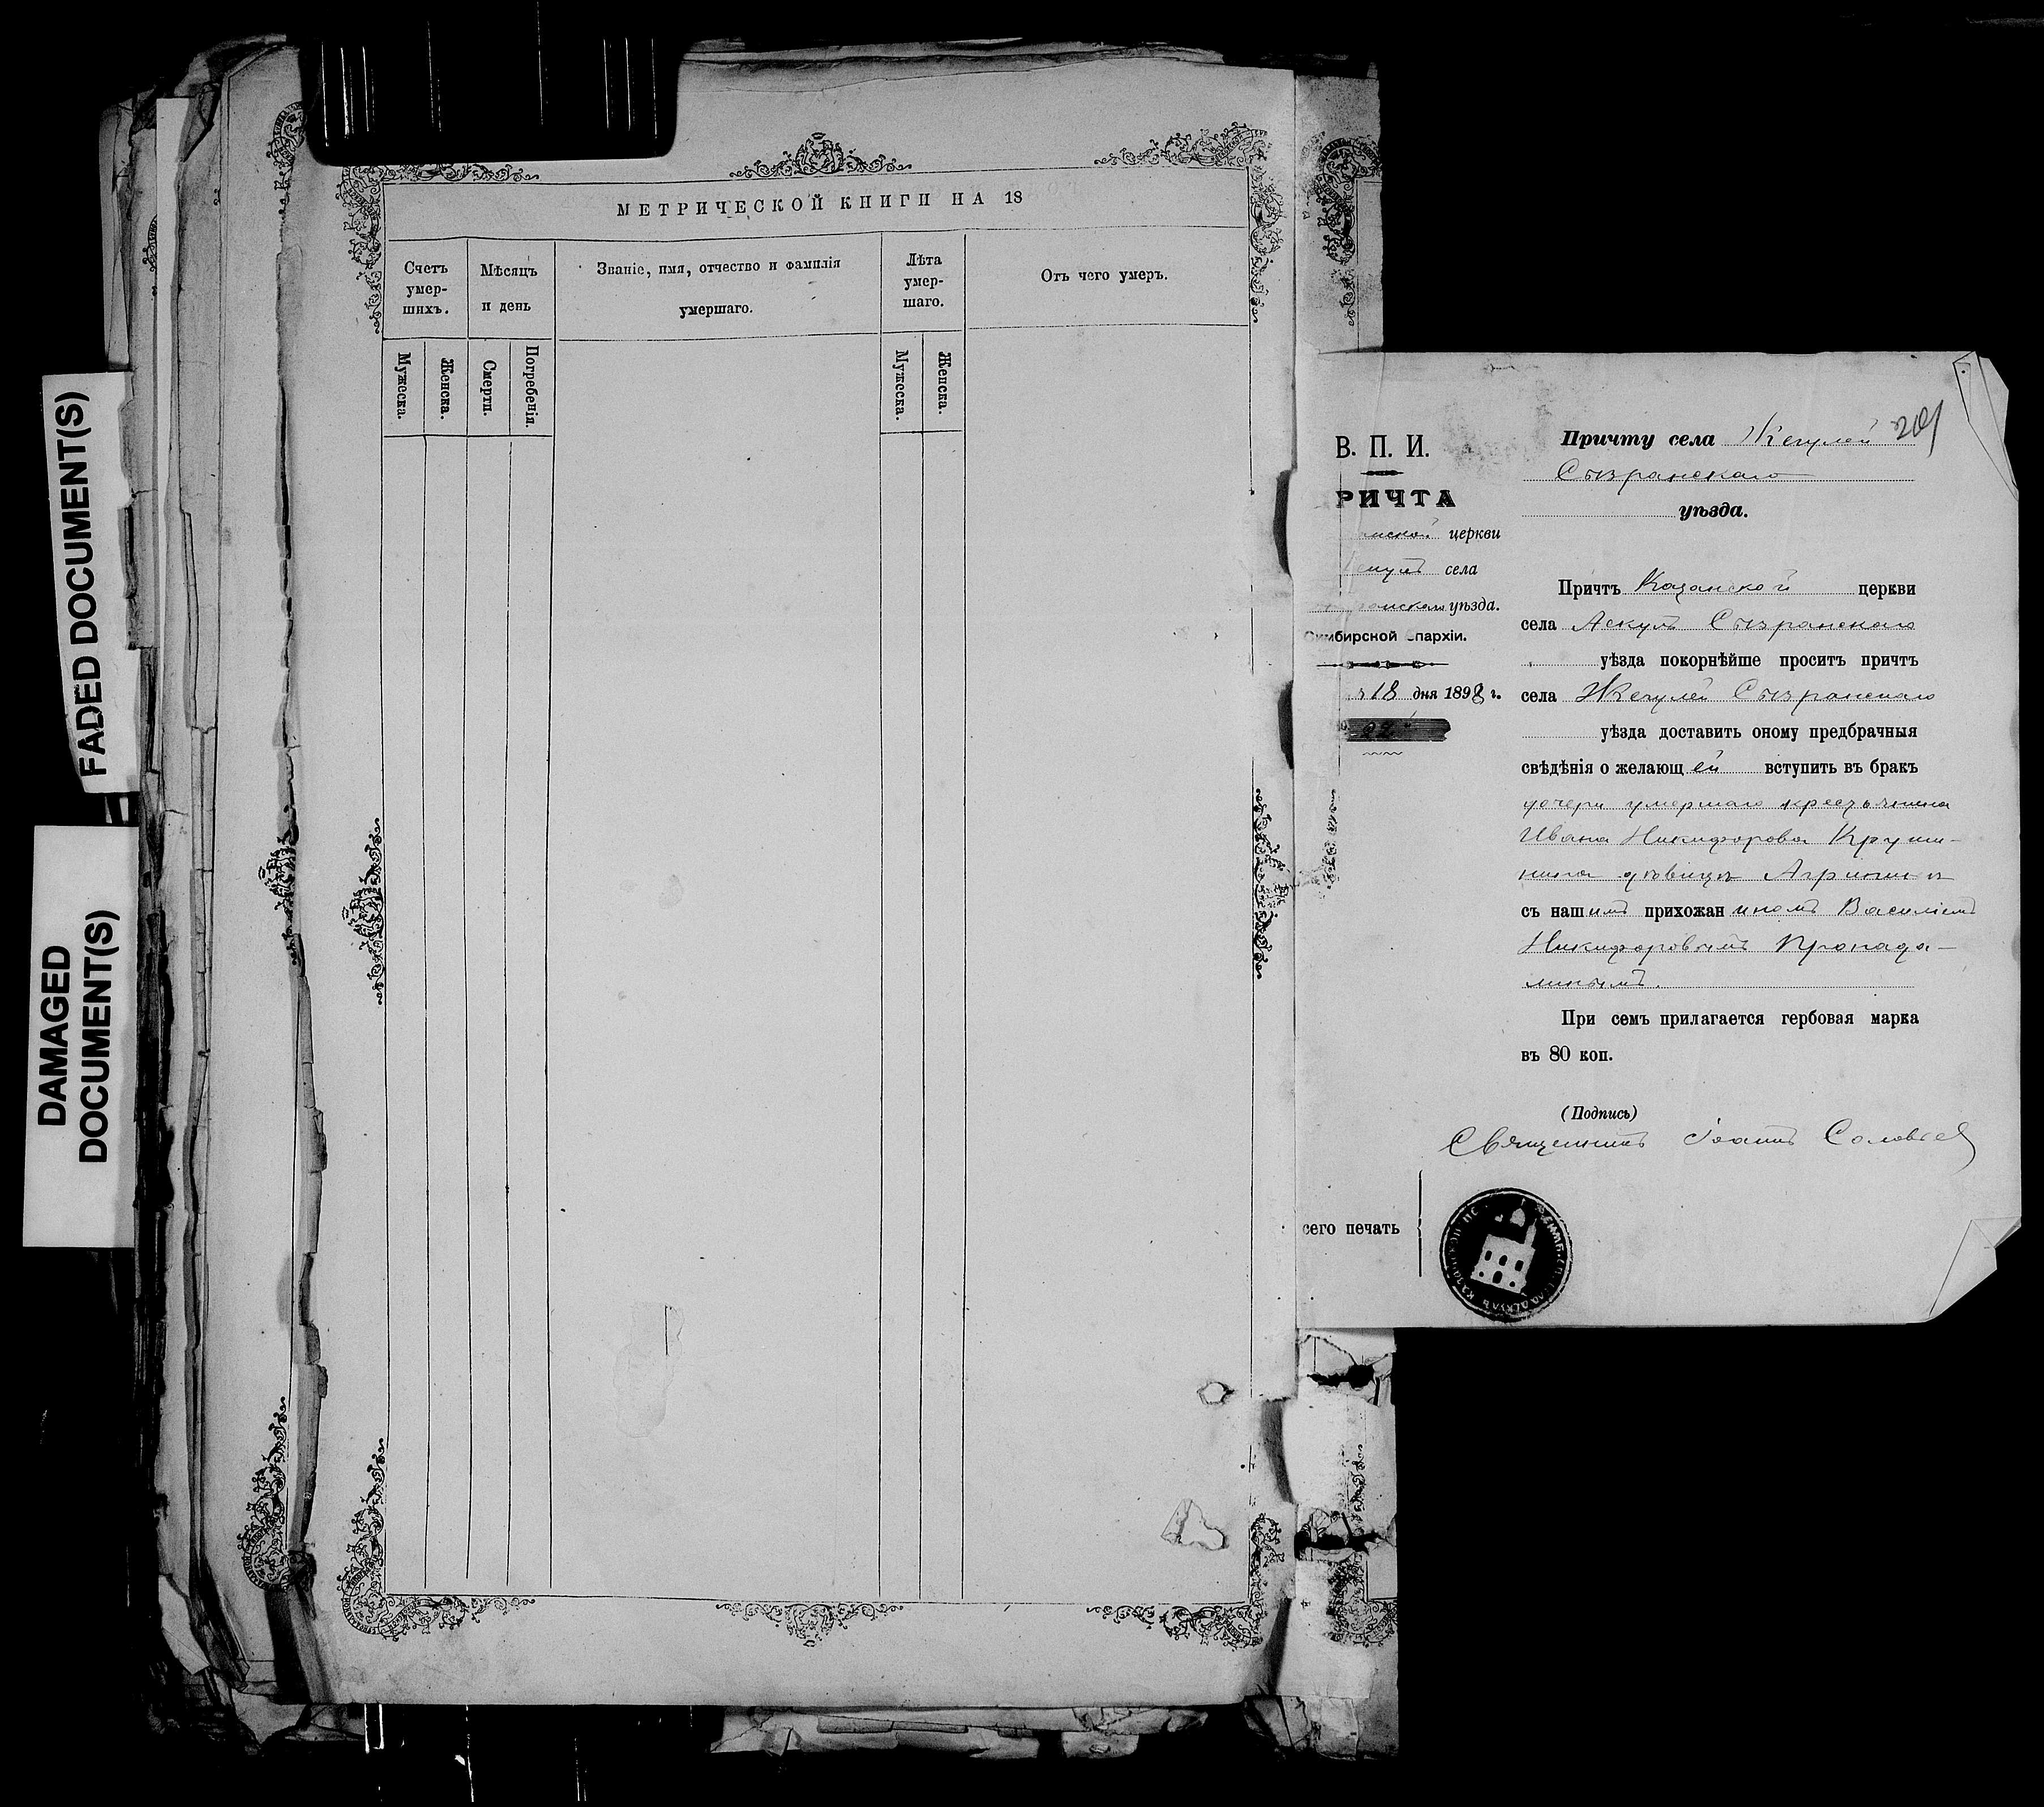 FADED DOCUMENT(S)
DAMAGED
DOCUMENT(S)
МЕТРИЧЕСКОЙ КНИГИ НА 18
Счетъ
умер-
шихъ.
Мѣсяцъ
и день
Званіе, имя, отчество и фамилія
умершаго.
Лѣта
умер-
шаго.
Отъ чего умеръ.
Мужеска.
Женска.
Смерти.
Погребенія.
Мужеска.
Женска.
В. П. И.
РИЧТА
церкви
села
уѣзда.
Симбирской епархіи.
18 дня 1898 г.
22
Причту села Жегулей 201
Сызранскаго
уѣзда.
Причтъ Казанской церкви
села Аскулъ Сызранскаго
уѣзда покорнѣйше проситъ причтъ
села Жегулей Сызранскаго
уѣзда доставить оному предбрачныя
свѣдѣнія о желающей вступить въ бракъ
дочери умершаго крестьянина
Ивана Никифорова Круши-
нина дѣвицѣ Агрипинѣ
съ нашимъ прихожаниномъ Василіемъ
Никифоровымъ Пропада-
линымъ.
При семъ прилагается гербовая марка
въ 80 коп.
(Подпись)
Священникъ Іоаннъ Соловьев
сего печать